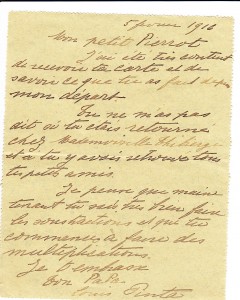 5 février 1916
Mon petit Pierrot
J'ai été très content
de recevoir ta carte et de
savoir ce que tu as fait depuis
mon départ.
Tu ne m'as pas
dit où tu étais retourné
chez
et si tu y avais retrouvé tous
tes petits amis.
Je pense que mainte
tenant tu sais très bien faire
les soustractions et que tu
commences à faire des
multiplications.
Je t'embrasse
Ton Papa